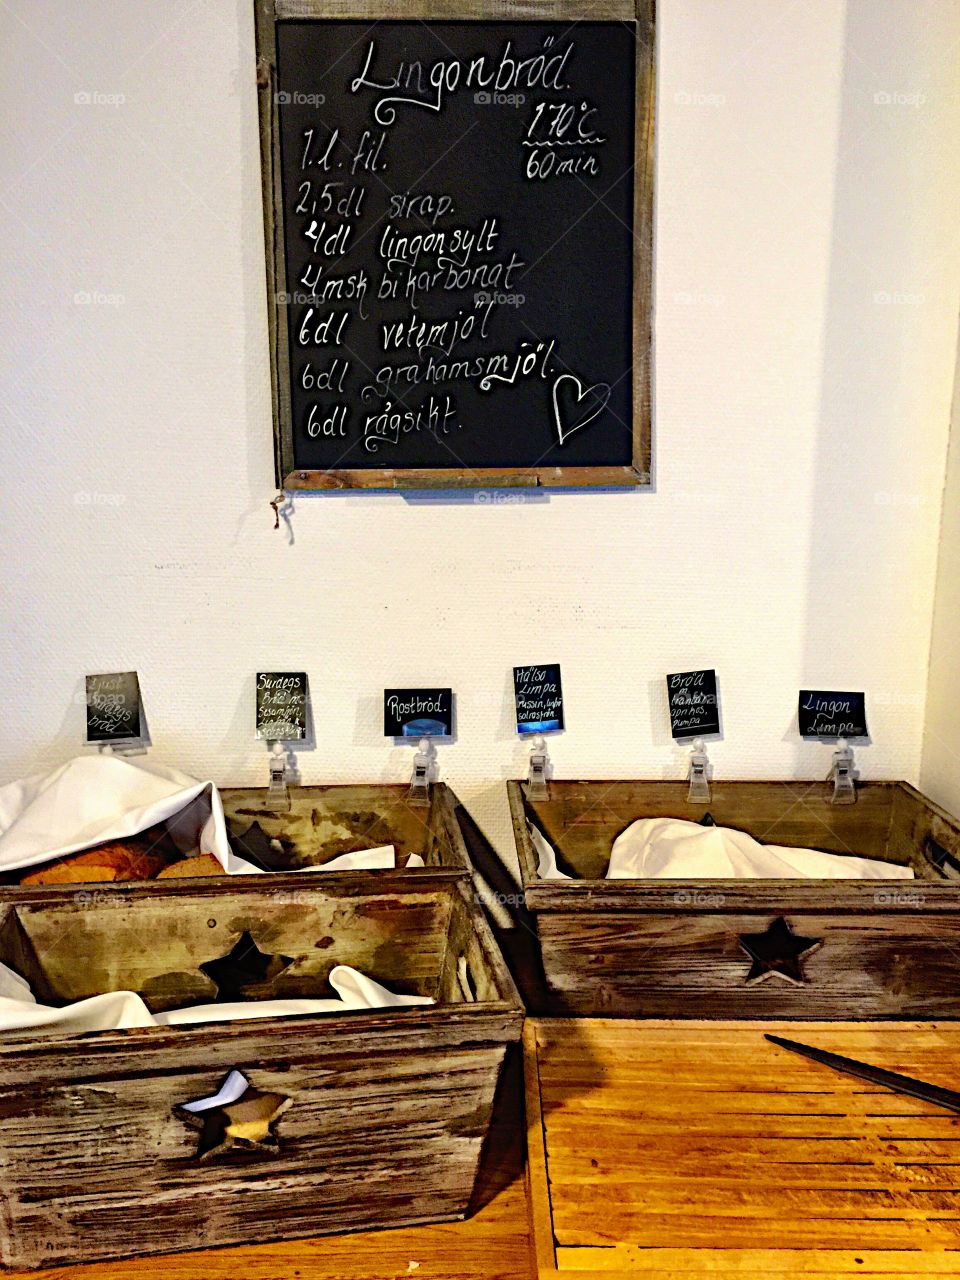 Lingonbröd.
170°C
60min
1.l. fil.
2,5dl sirap.
4dl lingonsylt
4msk bikarbonat
6dl vetemjöl
6dl grahamsmjöl.
6dl rågsikt.
Ljust
Surdegs
bröd
Surdegs
Bröd m.
Rostbröd.
Hälso
Limpa
russin,
solrosfrön.
Bröd
m
aprikos,
pumpa
Lingon
Limpa
foap